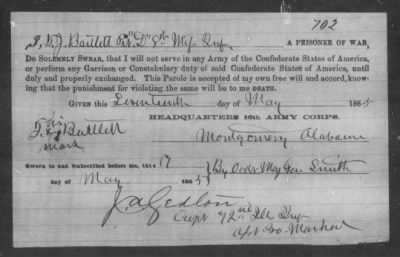 702
I, Bartlett Pvt "D" 8th Miss Inf. A PRISONER OF WAR,
DO SOLEMNLY SWEAR, that I will not serve in any Army of the Confederate States of America,
or perform any Garrison or Constabulary duty of said Confederate States of America, until
duly and properly exchanged. This Parole is accepted of my own free will and accord, know-
ing that the punishment for violating the same will be to me DEATH.
GIVEN this Seventeenth day of May 1865
HEADQUARTERS 16th ARMY CORPS.
his
Bartlett Montgomery Alabama
mark
Sworn to and Subscribed before me, this 17 By Order Maj Gen Smith
day of May 1865
Capt 72nd Ills Inf